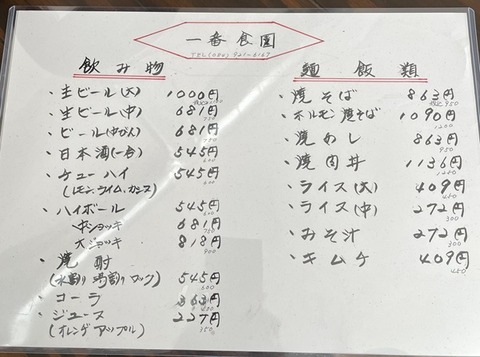 一番食園
TEL(084) 921-6167
飲み物
・生ビール(大) 1000円
税込1100
・生ビール(中) 681円
750
・ビール(中びん) 681円
750
・日本酒(一合) 545円
600
・チューハイ 545円
600
(レモン、ライム、カシス)
・ハイボール 545円
600
中ジョッキ 681円
750
大ジョッキ 818円
900
・焼酎
(水割り 湯割り ロック) 545円
600
・コーラ 363円
400
・ジュース 227円
250
(オレンヂ アップル)
麺飯類
・焼そば 863円
税込950
・ホルモン焼そば 1090円
1200
・焼めし 863円
950
・焼肉丼 1136円
1250
・ライス(大) 409円
450
・ライス(中) 272円
300
・みそ汁 272円
300
・キムチ 409円
450